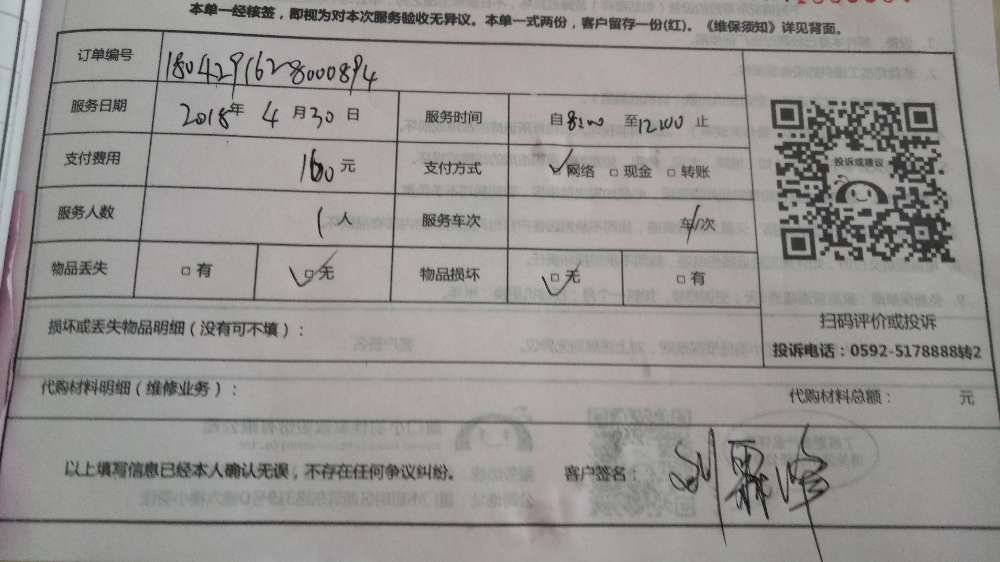 本单一经核签，即视为对本次服务验收无异议。本单一式两份，客户留存一份(红)。《维保须知》详见背面。
订单编号 1804291628000894
服务日期 2018年 4 月 30 日 服务时间 自 8:00 至 12:00 止
支付费用 160 元 支付方式 □网络 □现金 □转账
服务人数 1 人 服务车次 车/次
物品丢失 □ 有 □ 无 物品损坏 □ 无 □ 有
投诉或建议
扫码评价或投诉
投诉电话：0592-5178888转2
损坏或丢失物品明细（没有可不填）：
代购材料明细（维修业务）： 代购材料总额： 元
以上填写信息已经本人确认无误，不存在任何争议纠纷。 客户签名：